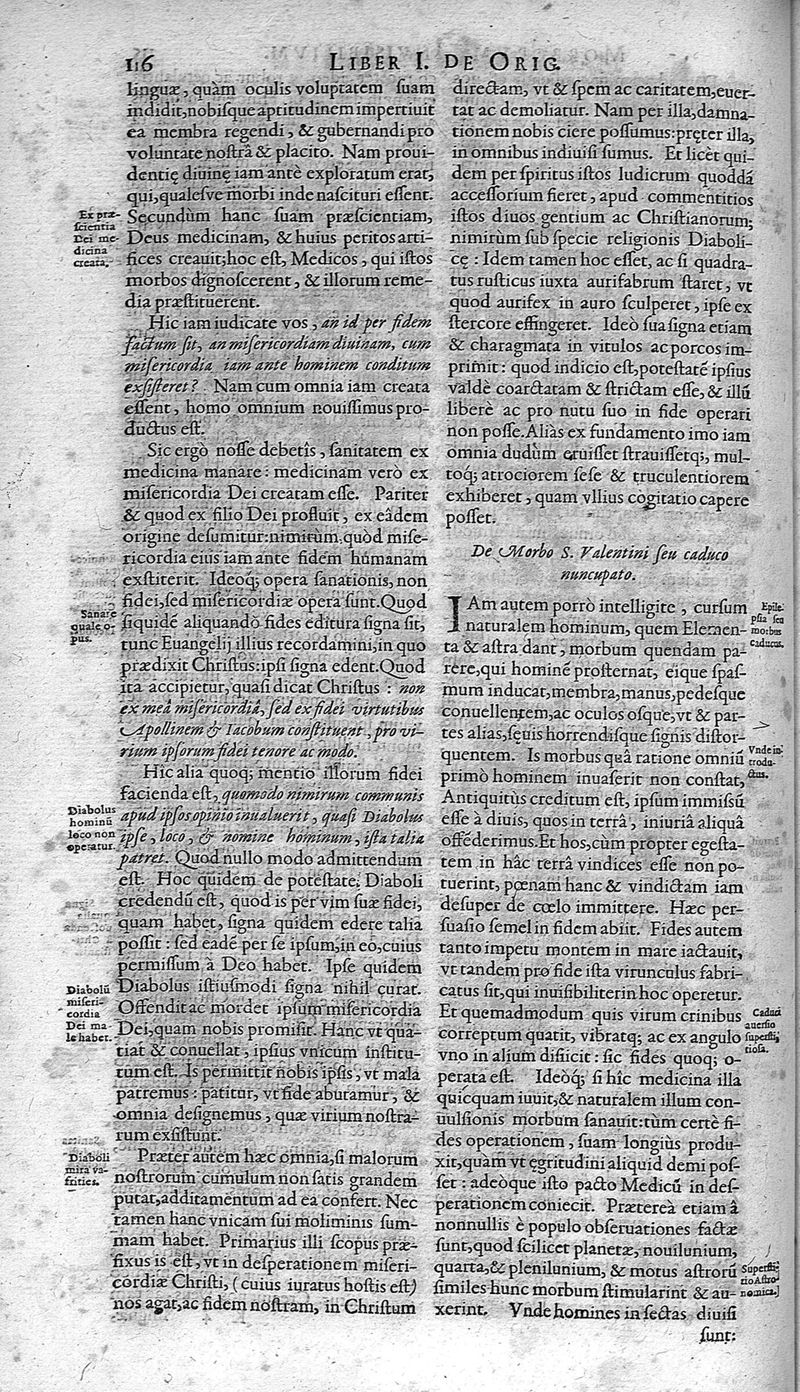 116 LIBER I. DE ORIG.
linguæ, quàm oculis voluptatem suam
indidit, nobisque aptitudinem impertiuit
ea membra regendi, & gubernandi pro
voluntate nostrâ & placito. Nam proui-
dentię diuinę iam antè exploratum erat,
qui, qualesve morbi inde nascituri essent.
Ex præ-
scientia
Dei me-
dicina
creata.
Secundùm hanc suam præscientiam,
Deus medicinam, & huius peritos arti-
fices creauit; hoc est, Medicos, qui istos
morbos dignoscerent, & illorum reme-
dia præstituerent.
Hic iam iudicate vos, an id per fidem
factum sit, an misericordiam diuinam, cum
misericordia iam ante hominem conditum
exsisteret? Nam cum omnia iam creata
essent, homo omnium nouissimus pro-
ductus est.
Sic ergò nosse debetis, sanitatem ex
medicina manare: medicinam verò ex
misericordia Dei creatam esse. Pariter
& quod ex filio Dei profluit, ex eâdem
origine desumitur: nimirùm, quòd mise-
ricordia eius iam ante fidem humanam
exstiterit. Ideoq; opera sanationis, non
fidei, sed misericordiæ opera sunt. Quod
Sanare
quale o-
pus.
siquidē aliquandò fides editura signa sit,
tunc Euangelij illius recordamini, in quo
prædixit Christus: ipsi signa edent. Quod
ita accipietur, quasi dicat Christus: non
ex meâ misericordiâ, sed ex fidei virtutibus
Apollinem & Iacobum constituent, pro vi-
rium ipsorum fidei tenore ac modo.
Hîc alia quoq; mentio illorum fidei
facienda est, quomodo nimirum communis
Diabolus
hominū
loco non
operatur.
apud ipsos opinio inualuerit, quasi Diabolus
ipse, loco, & nomine hominum, ista talia
patret. Quod nullo modo admittendum
est. Hoc quidem de potestate Diaboli
credendū est, quod is per vim suæ fidei,
quam habet, signa quidem edere talia
possit: sed eadē per se ipsum, in eo, cuius
permissum à Deo habet. Ipse quidem
Diabolū
miseri-
cordia
Dei ma-
le habet.
Diabolus istiusmodi signa nihil curat.
Offendit ac mordet ipsum misericordia
Dei, quam nobis promisit. Hanc vt qua-
tiat & conuellat, ipsius vnicum institu-
tum est. Is permittit nobis ipsis, vt mala
patremus: patitur, vt fide abutamur, &
omnia designemus, quæ virium nostra-
rum exsistunt.
Diaboli
mira va-
frities.
Præter autem hæc omnia, si malorum
nostrorum cumulum non satis grandem
putat, additamentum ad ea confert. Nec
tamen hanc vnicam sui moliminis sum-
mam habet. Primarius illi scopus præ-
fixus is est, vt in desperationem miseri-
cordiæ Christi, (cuius iuratus hostis est)
nos agat, ac fidem nostram, in Christum
directam, vt & spem ac caritatem, euer-
tat ac demoliatur. Nam per illa, damna-
tionem nobis ciere possumus: pręter illa,
in omnibus indiuisi sumus. Et licèt qui-
dem per spiritus istos ludicrum quoddā
accessorium fieret, apud commentitios
istos diuos gentium ac Christianorum;
nimirùm sub specie religionis Diaboli-
cę: Idem tamen hoc esset, ac si quadra-
tus rusticus iuxta aurifabrum staret, vt
quod aurifex in auro sculperet, ipse ex
stercore effingeret. Ideò sua signa etiam
& charagmata in vitulos ac porcos im-
primit: quod indicio est, potestatē ipsius
valdè coarctatam & strictam esse, & illū
liberè ac pro nutu suo in fide operari
non posse. Aliàs ex fundamento imo iam
omnia dudùm eruisset strauissetq;, mul-
toq; atrociorem sese & truculentiorem
exhiberet, quam vllius cogitatio capere
posset.
De Morbo S. Valentini seu caduco
nuncupato.
IAm autem porrò intelligite, cursum
naturalem hominum, quem Elemen-
ta & astra dant, morbum quendam pa-
Epile-
psia seu
morbus
caducus.
rere, qui hominē prosternat, eique spas-
mum inducat, membra, manus, pedesque
conuellentem, ac oculos osque, vt & par-
tes alias, sęuis horrendisque signis distor-
quentem. Is morbus quâ ratione omniū
Vnde in-
trodu-
ctus.
primò hominem inuaserit non constat,
Antiquitùs creditum est, ipsum immissū
esse à diuis, quos in terrâ, iniuriâ aliquâ
offēderimus. Et hos, cùm propter egesta-
tem in hâc terrâ vindices esse non po-
tuerint, pœnam hanc & vindictam iam
desuper de cœlo immittere. Hæc per-
suasio semel in fidem abiit. Fides autem
tanto impetu montem in mare iactauit,
vt tandem pro fide ista virunculus fabri-
catus sit, qui inuisibiliter in hoc operetur.
Et quemadmodum quis virum crinibus
Caduci
auersio
supersti-
tiosa.
correptum quatit, vibratq; ac ex angulo
vno in alium disiicit: sic fides quoq; o-
perata est. Ideoq; si hîc medicina illa
quicquam iuuit, & naturalem illum con-
uulsionis morbum sanauit: tùm certè fi-
des operationem, suam longiùs produ-
xit, quàm vt ęgritudini aliquid demi pos-
set: adeòque isto pacto Medicū in des-
perationem coniecit. Prætereà etiam â
nonnullis è populo obseruationes factæ
sunt, quod scilicet planetæ, nouilunium,
quarta, & plenilunium, & motus astrorū
Supersti-
tio Astro-
nomica.
similes hunc morbum stimularint & au-
xerint. Vnde homines in sectas diuisi
sunt: